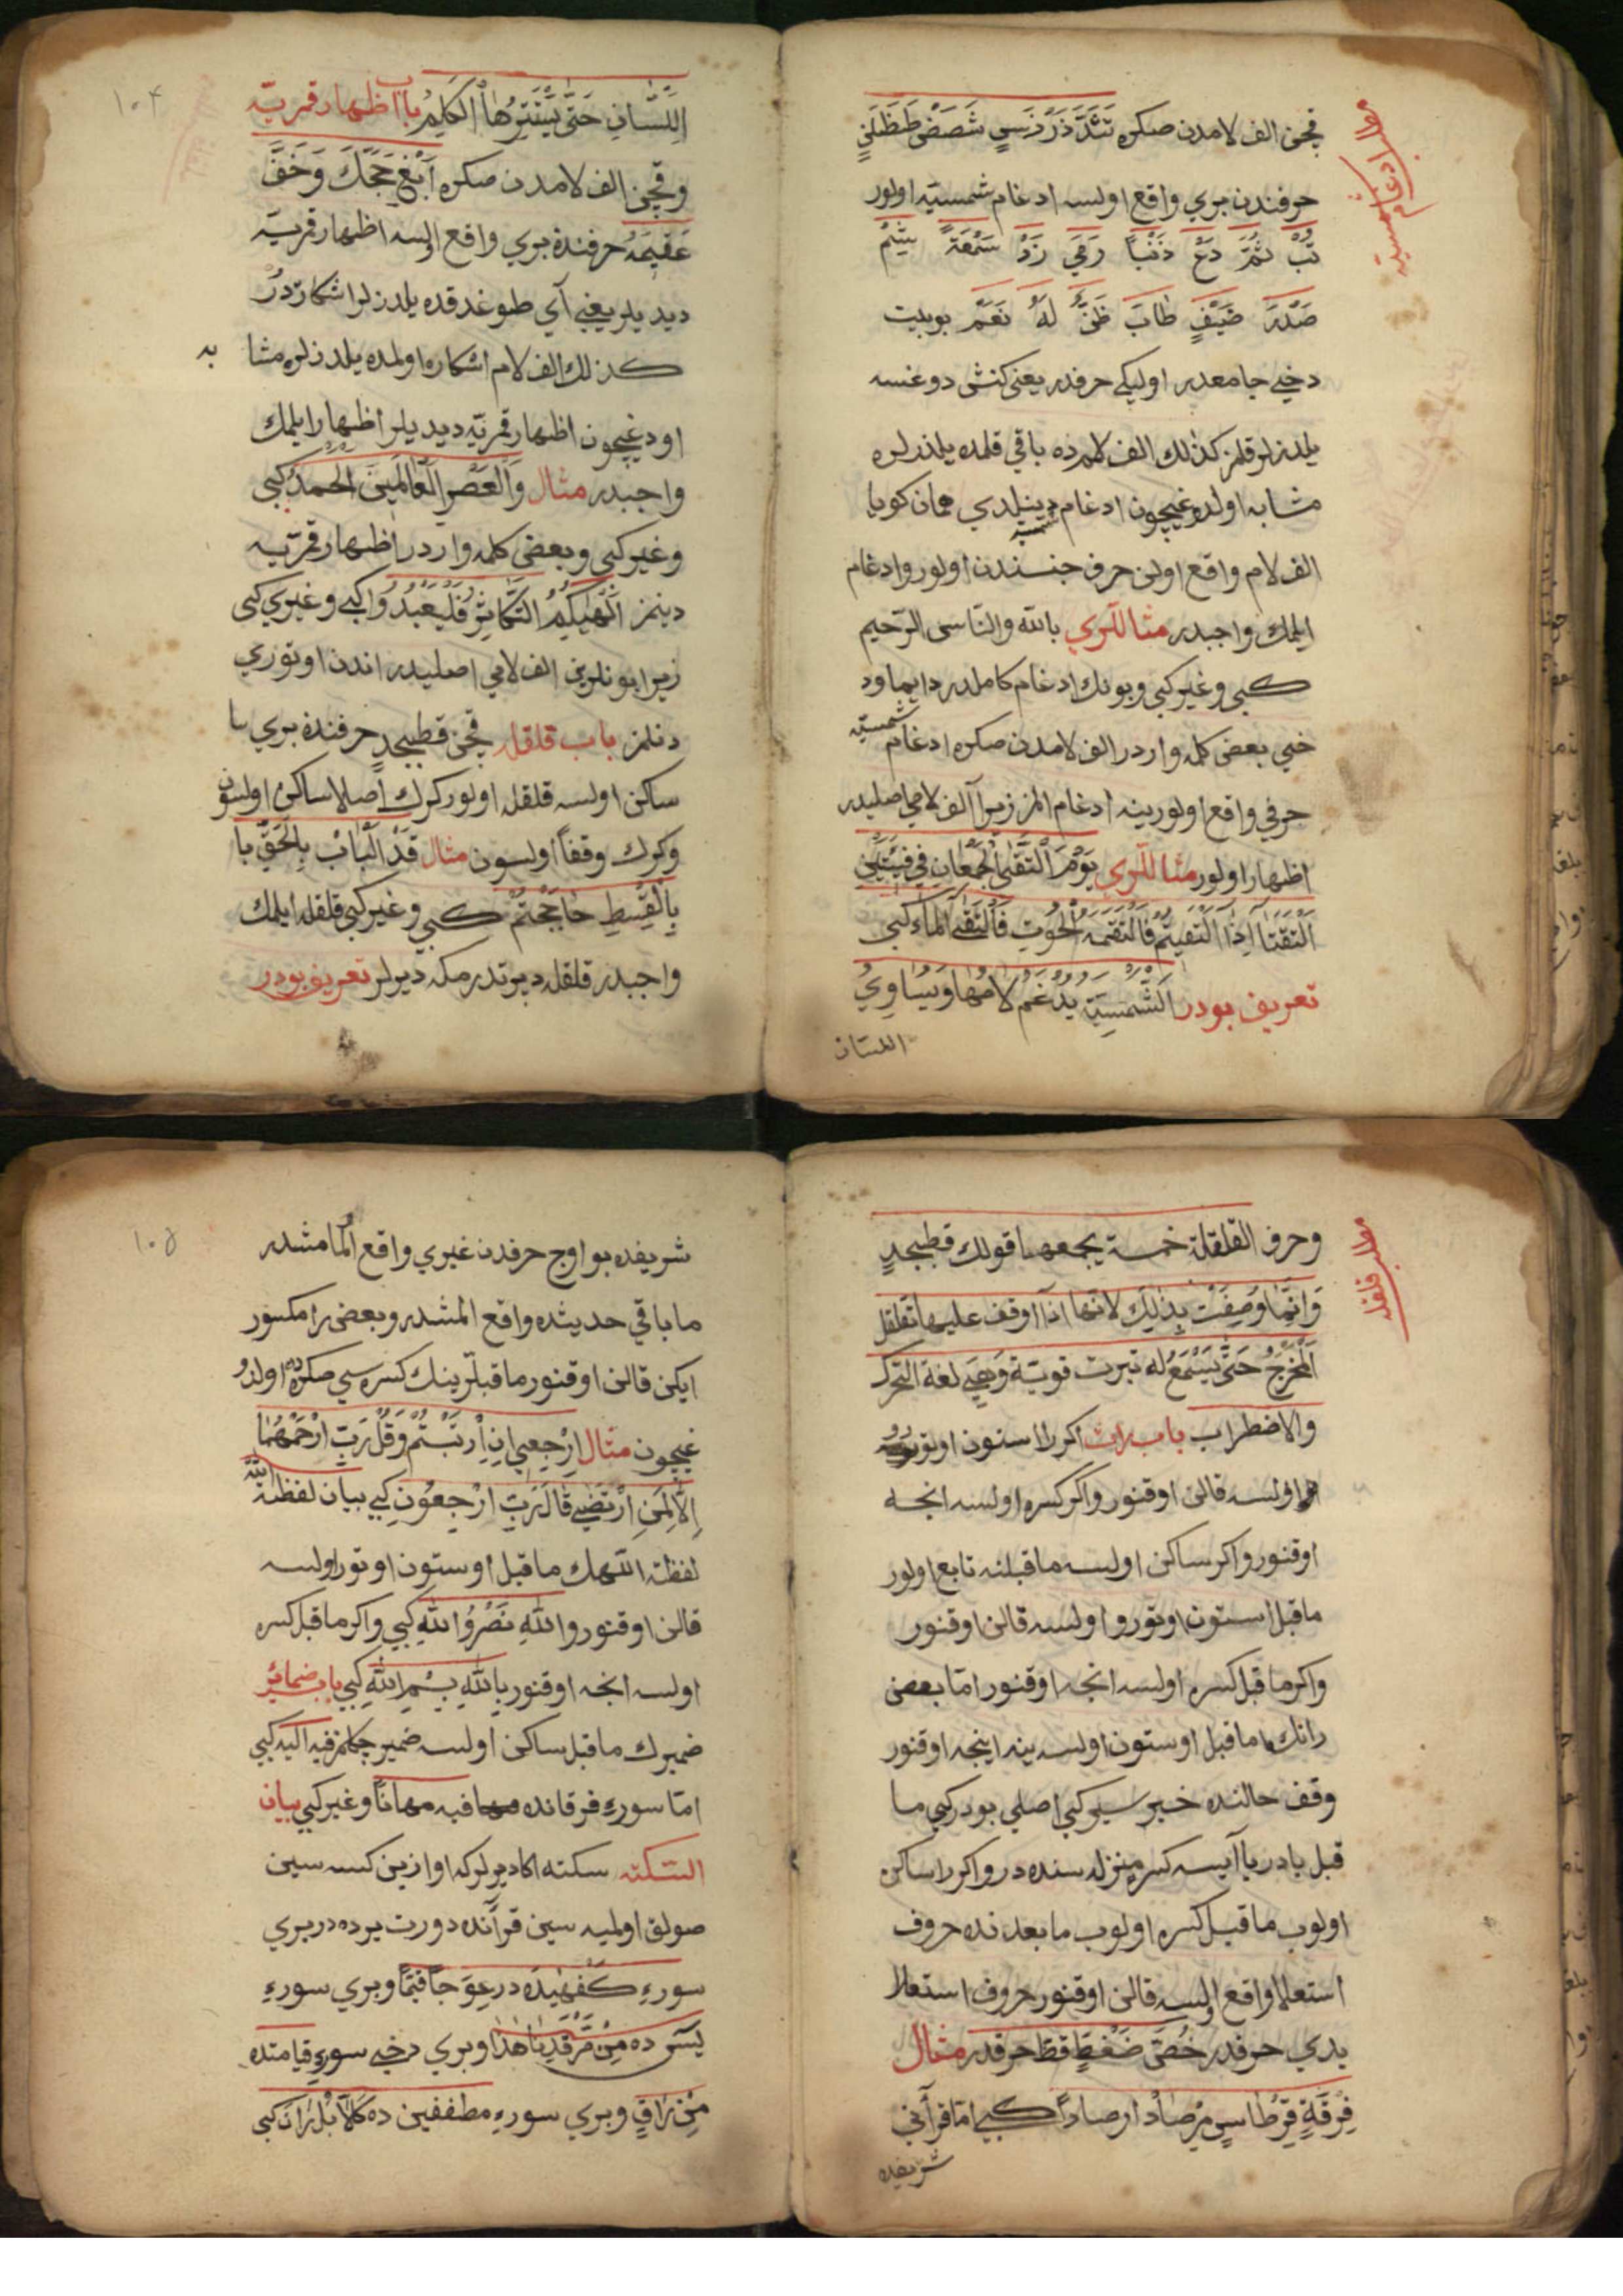 مطلب ادغام شمسيّه
قچن الف لامدن صكره تَثَدَذَرَزَسٍ شَصَضٍ طَظَلَنٍ
حرفندن بري واقع اولسه ادغام شمسيّه اولور
تُبْ ثُمَّ دَعْ ذَنْبًا رَمَيَ زَدْ سَمْعَةً شِيَمْ
صَدْرَ ضَيْفٍ طَابَ ظَنَّ لَهُ نَعَمْ بو بيت
دخي جامعدر اول يكي حرفدر يعني كنش دوغنسه
يلدزلر قلمز كذلك الف لامده باقي قلمده يلدزلره
مشابه اولدوغيچون ادغام شمسيه دينلدي همان كويا
الف لام واقع اولن حرف جنسندن اولور وادغام
ايلمك واجبدر مثاللري بالله والنّاس الرّحيم
كبي وغير كبي وبونك ادغام كاملدر دايما ود
خي بعض كلمه واردر الف لامدن صكره ادغام شمسيّه
حرفي واقع اولور ينه ادغام المز زيرا الف لامي اصليدر
اظهار اولور مثاللري يَوْمَ الْتَقَى الْجَمْعَانِ في فِئَتَيْنِ
الْتَقَتَا اِذَا الْتَقَيْتُمْ فَالْتَقَمَهُ الْحُوتِ فَالْتَقَى الْمَاءُ كبي
تعريف بودر اَلشَّمْسِيَّةِ يُدْغَمُ لَامُهَا وَيُسَاوِي
اللسان
١٠٤
اللِّسَانِ حَتَّى يَسْتَتِرُهَا الْكَلِمُ باب اظهار قمريّه
وقچن الف لامدن صكره اَبْغِ حَجَّكَ وَخَفْ
عَقِيمَهُ حرفنده بري واقع اولسه اظهار قمريّه
ديديلر يعني آي طوغدقده يلدزلر اشكاره در
كذلك الف لام اشكاره اولمده يلدزلره مشا به
اودغيچون اظهار قمريّه ديديلر اظهار ايلمك
واجبدر مثال وَالْعَصْرِ الْعَالَمِينَ الْحَمْدُ كبي
وغير كبي وبعض كلمه واردر اظهار قمريّه
دينمز اَلْهٰيكُمُ التَّكَاثُرُ فَلْيَعْبُدُوا كبي وغيري كبي
زيرا بونلرين الف لامي اصليدر اندن اوتوري
دنلمز باب قلقله قچن قطبجدٍ حرفنده بري
ساكن اولسه قلقله اولور كرك اصلا ساكن اولسون
وكرك وقفًا اولسون مثال قَدْ اَلْبَابْ بِالْحَقِّ با
بِالْقِسْطِ حَاجَجْتُمْ كبي وغير كبي قلقله ايلمك
واجبدر قلقله ديرتدرمكه ديرلر تعريف بودر
مطلب قلقله
وحرف القلقلة خمسة يجمعها قولك قطبجدٍ
وَاِنَّمَا وُصِفَتْ بِذٰلِكَ لانها اذا اوقف عليها تقلقل
اَلْمَخْرَجُ حَتَّى يُسْمَعُ له نبرت قويّة وَهِيَ لغة التحرك
والاضطراب باب راءت اكر را استون اوتورو
اولسه قالن اوقنور واكر كسره اولسه انجه
اوقنور واكر ساكن اولسه ماقبلنه تابع اولور
ماقبل استون اوتورو اولسه قالن اوقنور
واكر ماقبل كسره اولسه انجه اوقنور امّا بعض
رانك ماقبل اوستون اولسه ينه اينجه اوقنور
وقف حالنده خير سير كبي اصلي بودر كيم ما
قبل يادر يا ايسه كسره منزله سنده در واكر را ساكن
اولوب ماقبل كسره اولوب مابعدنده حروف
استعلا واقع اولسه قالن اوقنور حروف استعلا
يدي حرفدر خُصَّ ضَغْطٍ قظ حرفدر مثال
فِرْقَةٍ قِرْطَاسٍ مِرْصَادْ اِرصادًا كبي امّا قرآني
شريفده
١٠٥
شريفده بو اوج حرفدن غيري واقع المامشدر
ما باقي حديثده واقع المشدر وبعض را مكسور
ايكن قالن اوقنور ماقبلرينك كسره سي صكره ده اولدو
غيچون مثال اِرْجِعِي اِنِ ارْتَبْتُمْ وَقُلْ رَبِّ ارْحَمْهُمَا
اِلَّا لِمَنِ ارْتَضَى قَالَ رَبِّ ارْجِعُونِ كبي بيان لفظة الله
لفظة اللهك ماقبل اوستون اوتور اولسه
قالن اوقنور والله نَصْرُ الله كبي واكر ماقبل كسره
اولسه انجه اوقنور بِاللهِ بِسْمِ اللهِ كبي باب ضمائر
ضميرك ماقبل ساكن اولسه ضمير چكلمز فيه اليه كبي
امّا سورهء فرقانده فيه مهانًا وغير كبي بيان
السّكته سكته اكا ديرلر كه اوازين كسه سين
صولق اولميه سين قرآنده دورت يرده در بري
سورهء كَهْفْده در عِوَجًا قَيِّمًا وبري سورهء
يٰسٓ ده مِنْ مَرْقَدِنَا هٰذَا وبري دخي سورهء قيامتده
مَنْ رَاقٍ وبري سورهء مطففين ده كَلَّا بَلْ رَانَ كبي